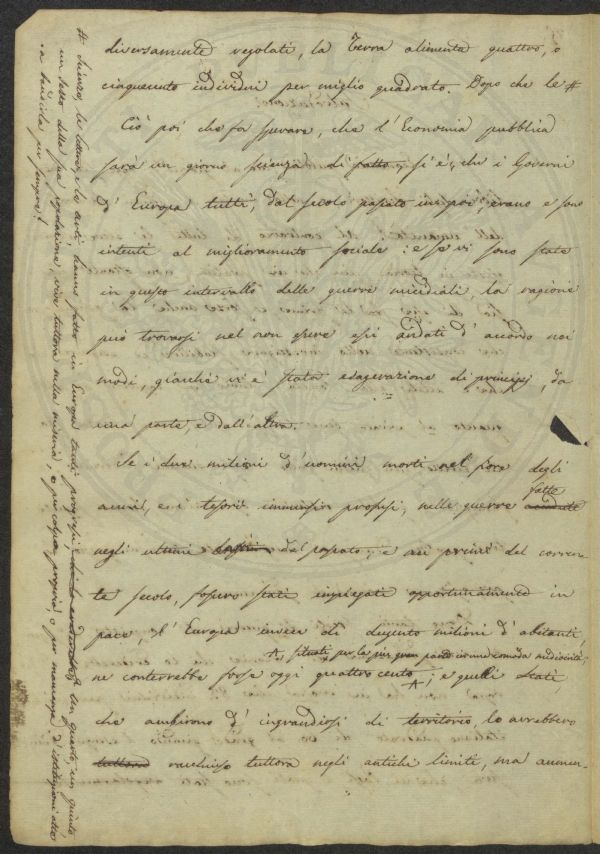 diversamente regolati, la Terra alimenta quattro, o
cinquecento individui per miglio quadrato. Dopo che le #
Ciò poi che fa sperare, che l'Economia pubblica
sarà un giorno scienza di fatto, si è, che i Governi
d'Europa tutti, dal secolo passato in poi, erano e sono
intenti al miglioramento sociale: e se vi sono state
in questo intervallo delle guerre micidiali, la ragione
può trovarsi nel non essere essi andati d'accordo nei
modi, giacché vi è stata esagerazione di principj, da
una parte, e dall'altra.
Se i due milioni d'uomini morti nel fiore degli
anni, e i tesori immensi profusi, nelle guerre fatte
negli ultimi del passato, e nei primi del corren-
te secolo, fossero stati impiegati opportunamente in
pace, l'Europa invece di dugento milioni d'abitanti,
A, situati per la più gran parte in una comoda mediocrità
ne conterrebbe forse oggi quattrocento A; e quelli Stati,
che ambirono d'ingrandirsi di territorio, lo avrebbero
tuttora racchiuso tuttora negli antichi limiti, ma aumen-
# scienze, le lettere, e le arti hanno fatto in Europa tanti progressi, un quarto, un quinto
un sesto della sua popolazione, vive tuttora nella miseria, o per colpa propria, o per mancanza d'istituzioni atte
a bandirla per sempre!